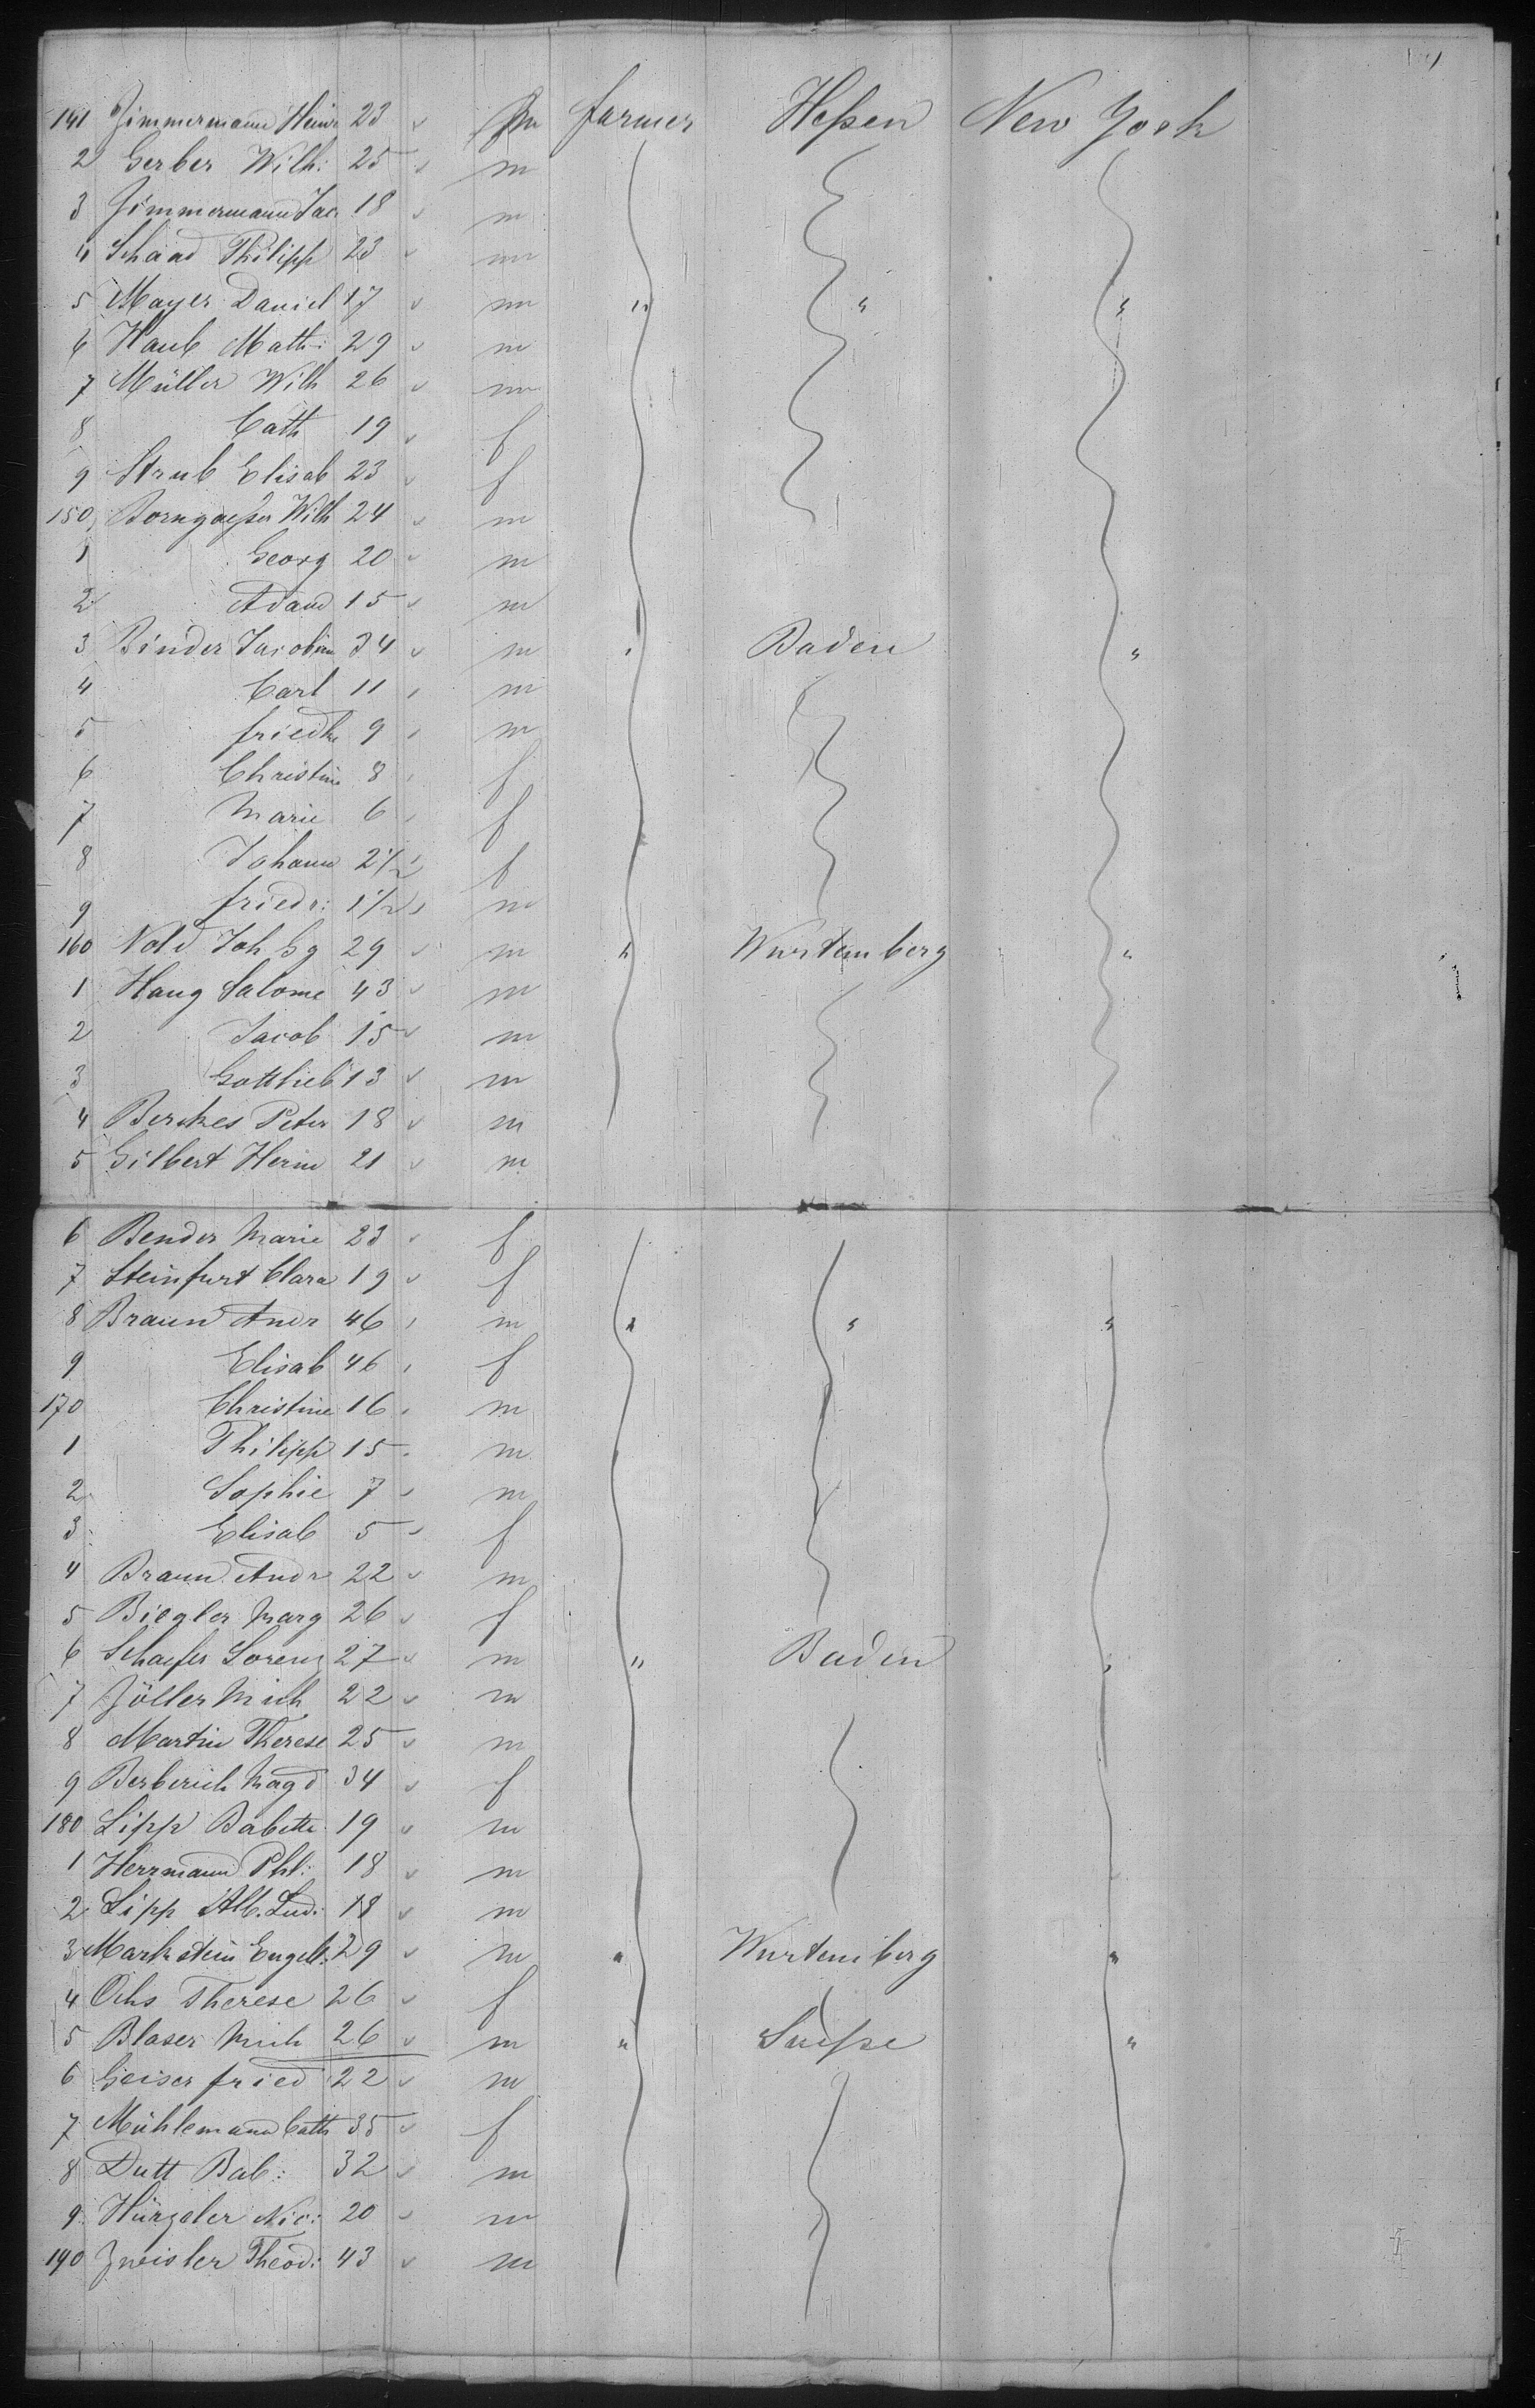 141 Zimmermann Heinr 23 m farmer Heßen New York
2 Gerber Wilh: 25 m
3 Zimmermann Jac 18 m
4 Schaad Philipp 23 m
5 Mayer Daniel 17 m " " "
6 Haub Math: 29 m
7 Müller Wilh 26 m
8 Cath 19 f
9 Strub Elisab 23 f
150 Borngaeßer Wilh 24 m
1 Georg 20 m
2 Adam 15 m
3 Binder Jacobine 34 m " Baden "
4 Carl 11 m
5 friedke 9 m
6 Christine 8 f
7 Marie 6 f
8 Johann 2 1/2 f
9 friedr: 1 1/2 m
160 Nold Joh Gg 29 m " Wurtemberg "
1 Haug Salome 43 m
2 Jacob 15 m
3 Gottlieb 13 m
4 Berckes Peter 18 m
5 Gilbert Herm 21 m
6 Bender Marie 23 f
7 Steinfurt Clara 19 f
8 Braun Andr 46 m " " "
9 Elisab 46 f
170 Christine 16 m
1 Philipp 15 m
2 Sophie 7 m
3 Elisab 5 f
4 Braun Andr 22 m
5 Biegler Marg 26 f
6 Schaefer Lorenz 27 m " Baden "
7 Zöller Mich 22 m
8 Martin Therese 25 m
9 Berberich Magd 34 f
180 Lipp Babette 19 m
1 Herrmann Phl: 18 m
2 Lipp Alb. Lud: 18 m
3 Markstein Engelb: 29 m " Wurtemberg "
4 Ochs Therese 26 f
5 Blaser Mich 26 m " Suisse "
6 Geiser fried 22 m
7 Mühlemann Cath 35 f
8 Dutt Bab: 32 m
9 Hürzeler Nic: 20 m
190 Zweisler Theod: 43 m